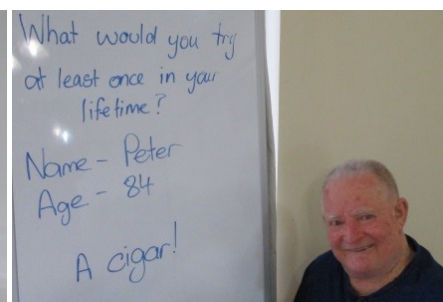 What would you try
at least once in your
lifetime?
Name - Peter
Age - 84
A cigar!